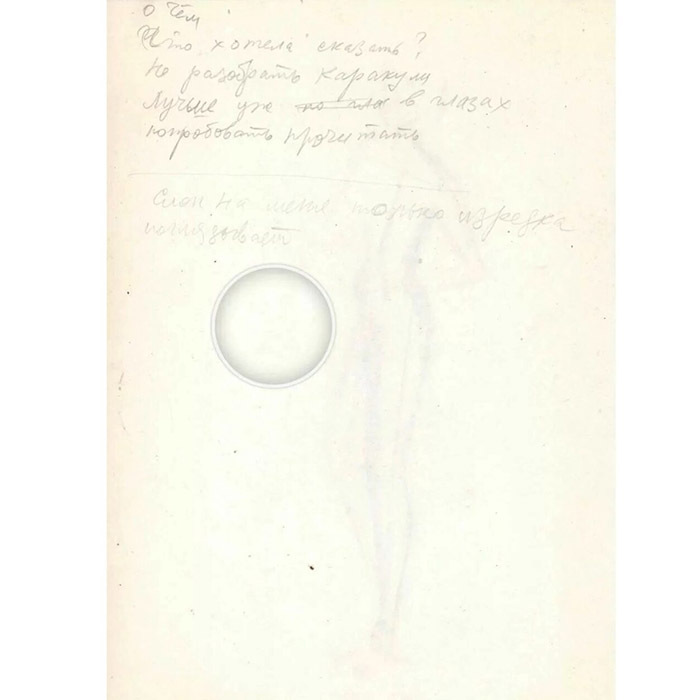 о чём
Что хотела сказать?
Не разобрать каракули
Лучше уже в глазах
попробовать прочитать
на меня только изредка
поглядывает